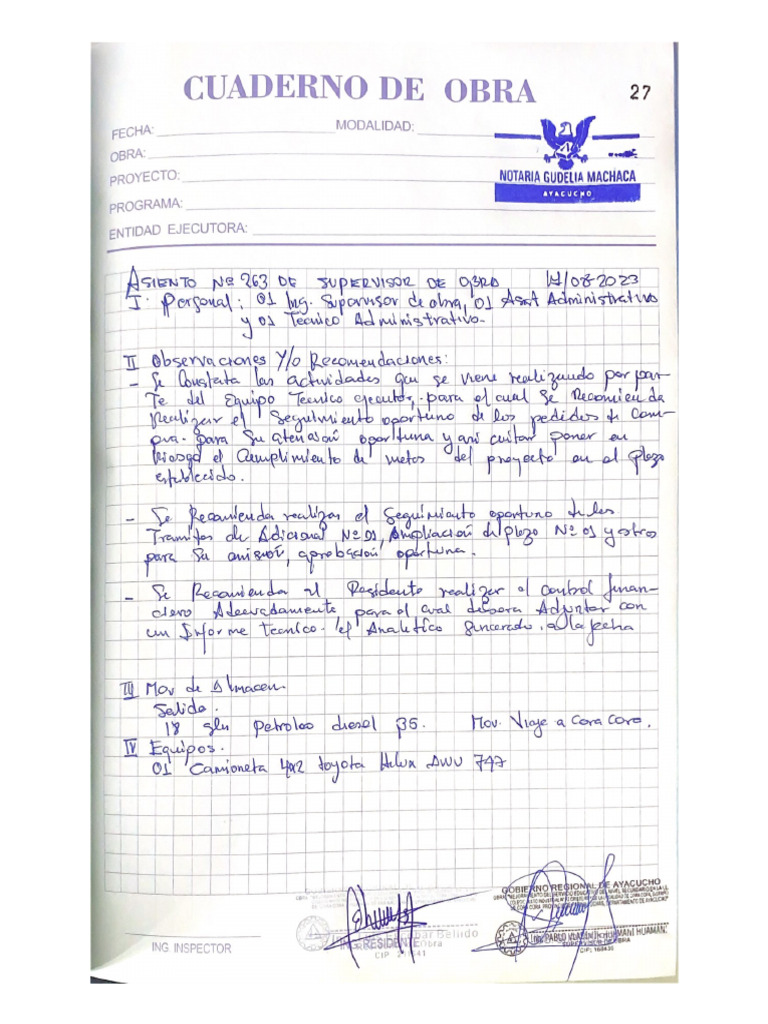 CUADERNO DE OBRA
27
FECHA: MODALIDAD:
OBRA:
PROYECTO:
PROGRAMA:
ENTIDAD EJECUTORA:
NOTARIA GUDELIA MACHACA
AYACUCHO
ASIENTO Nº 263 DE SUPERVISOR DE OBRA /08-2023
I. Personal: 01 Ing. Supervisor de obra, 01 Asat Administrativo
y 01 Tecnico Administrativo.
II Observaciones Y/o Recomendaciones:
- Se Constata las actividades que se viene realizando por par
te del Equipo Tecnico ejecutor, para el cual se Recomienda
Realizar el Seguimiento oportuno de los pedidos de Com-
pra. para su atención oportuna y asi evitar poner en
Riesgo el Cumplimiento de metas del proyecto en el plazo
establecido.
- Se Recomienda realizar el Seguimiento oportuno de los
Tramites de Adicional Nº 01, Ampliación de plazo Nº 01 y otros
para su emisión, aprobación oportuna.
- Se Recomienda al Residente realizar el control finan-
ciero Adecuadamente para el cual debera Adjuntar con
un Informe Tecnico. el Analitico Sincerado. a la fecha
III Mov de Almacen.
Salida.
18 gln Petroleo diesel B5. Mov. Viaje a Cora Cora.
IV Equipos.
01 Camioneta 4x2 toyota Hilux 747
GOBIERNO REGIONAL DE AYACUCHO
ING INSPECTOR
ING RESIDENTE
Bellido
CIP
ING. PABLO HUAMANI HUAMANI
SUPERVISOR DE OBRA
CIP: